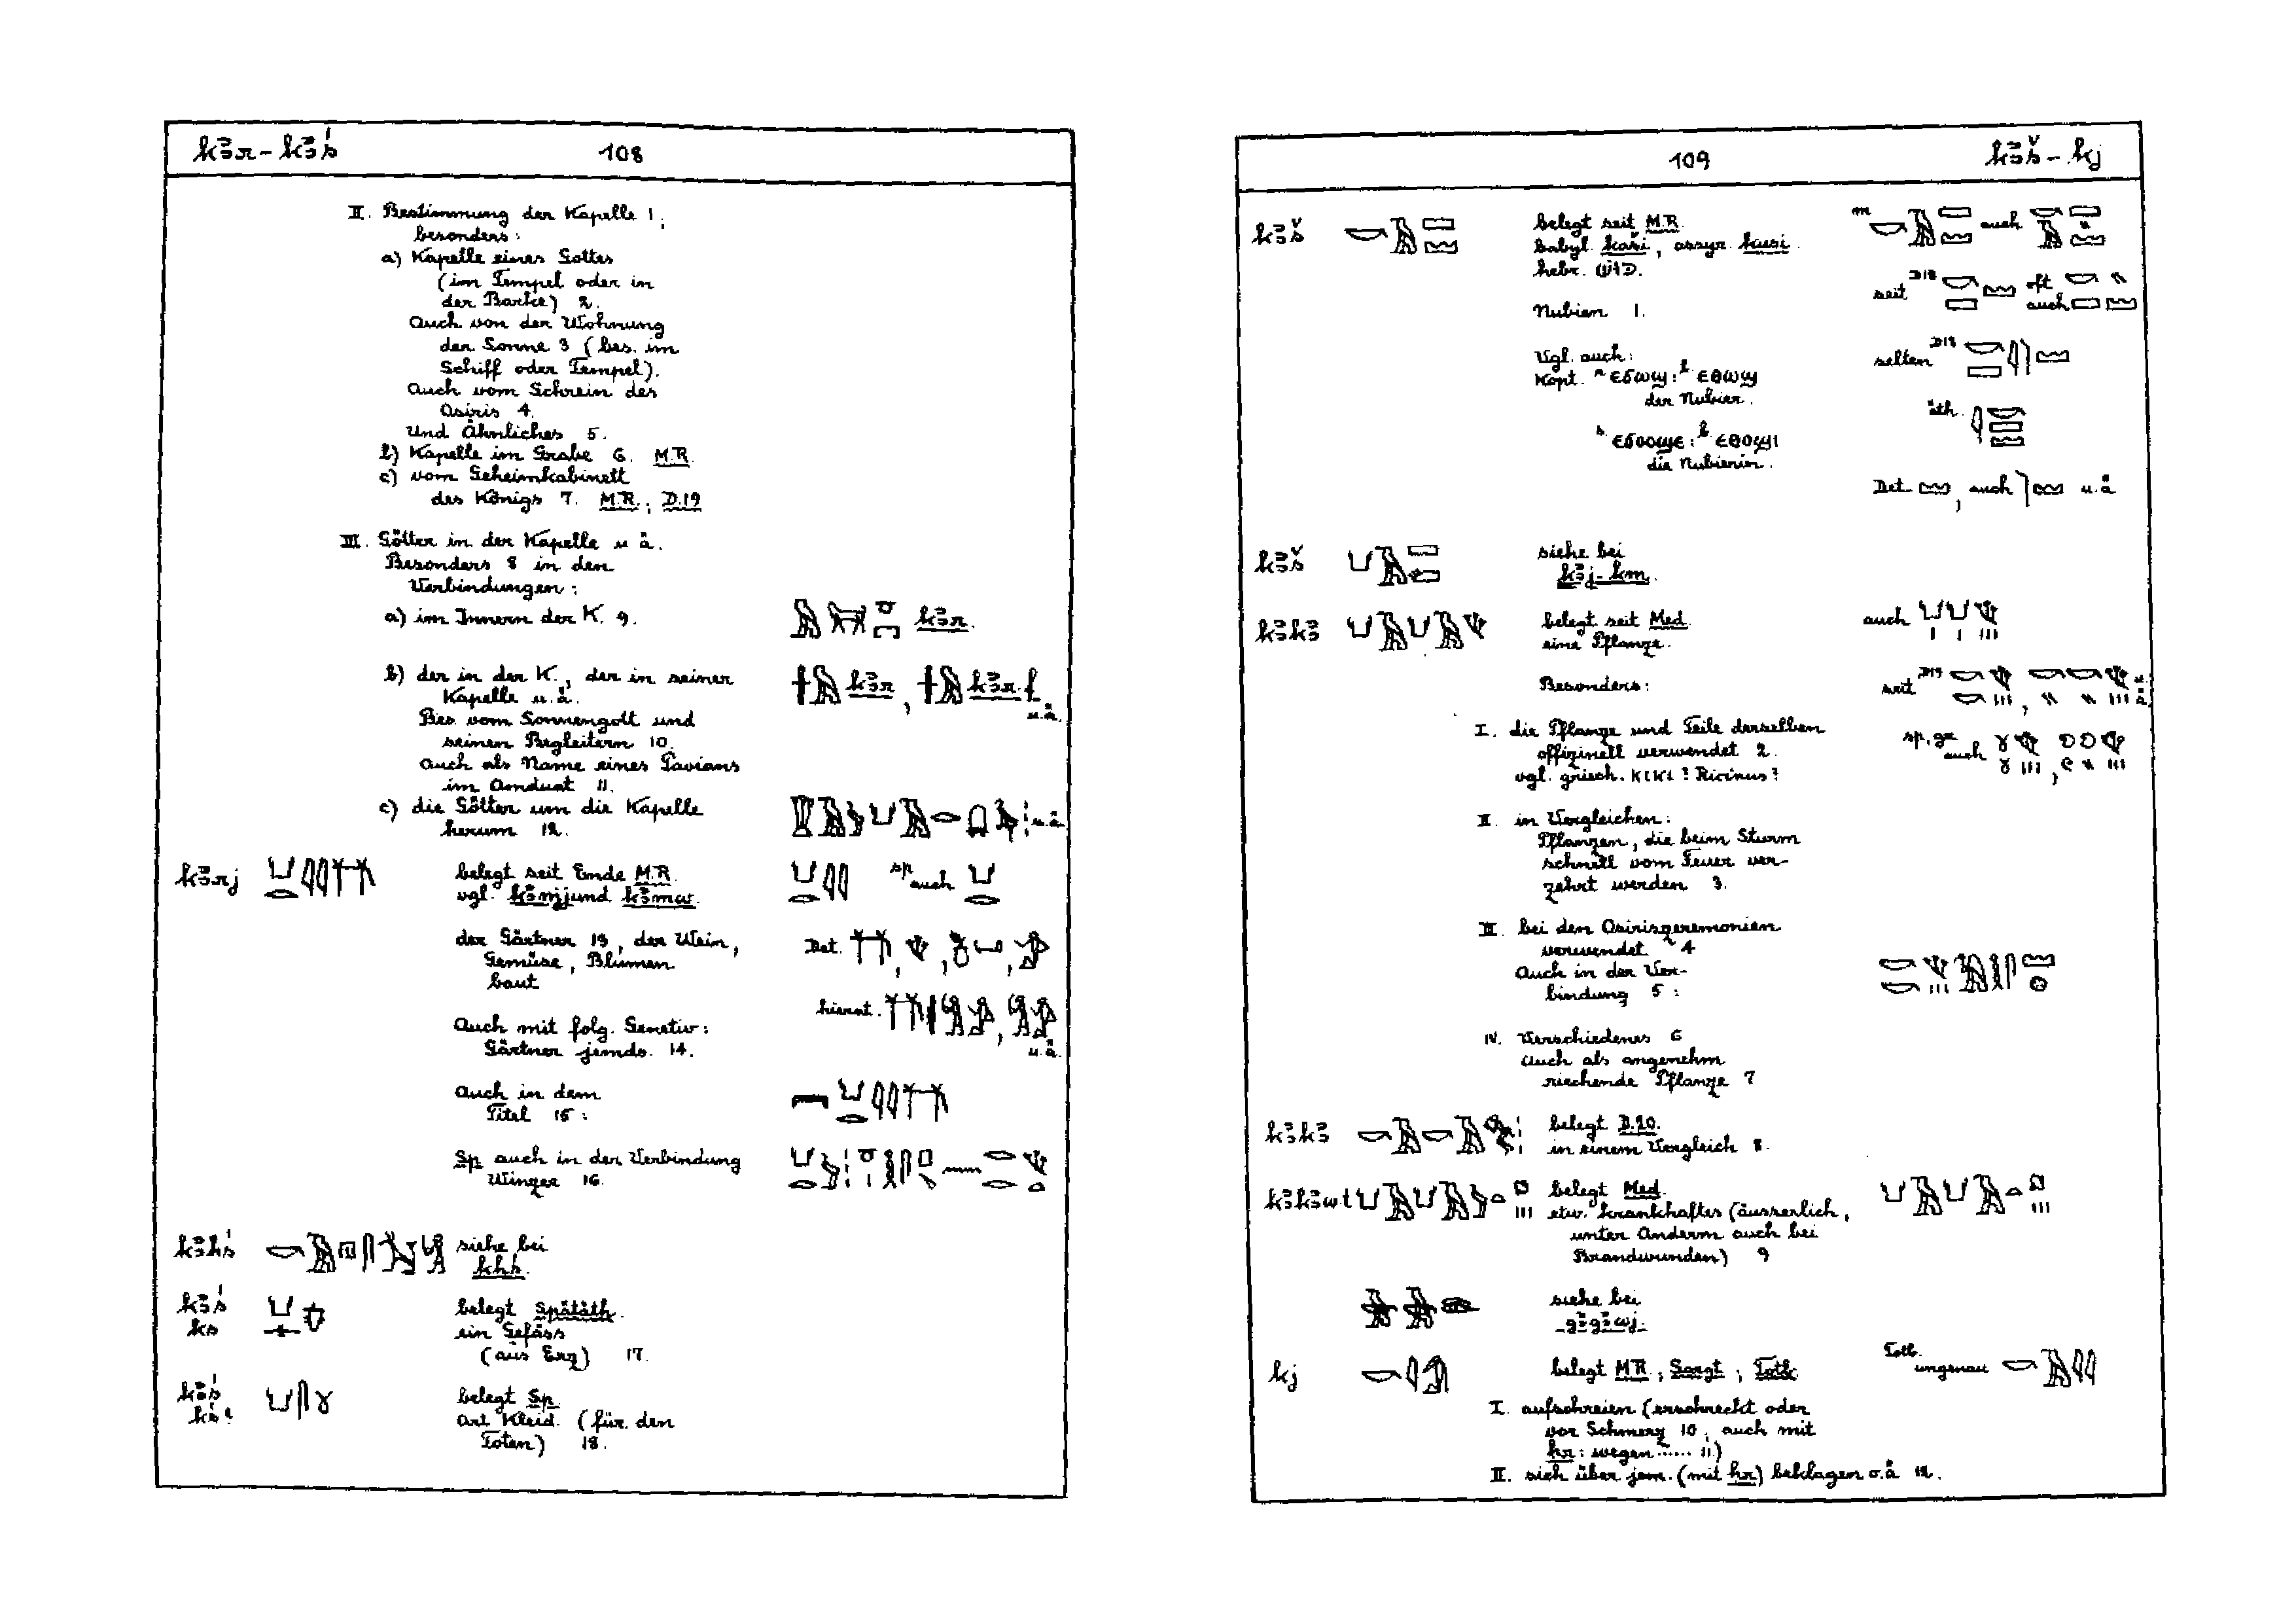 kꜣr - kꜣś
108
II. Bestimmung der Kapelle 1,
besonders:
a) Kapelle eines Gottes
(im Tempel oder in
der Barke) 2.
Auch von der Wohnung
der Sonne 3 (bes. im
Schiff oder Tempel).
Auch vom Schrein des
Osiris 4.
Und Ähnliches 5.
b) Kapelle im Grabe 6. M.R.
c) vom Geheimkabinett
des Königs 7. M.R.; D.19
III. Götter in der Kapelle u. ä.
Besonders 8 in den
Verbindungen:
a) im Innern der K. 9. kꜣr.
b) der in der K., der in seiner kꜣr, kꜣr.f
Kapelle u. ä. u. ä.
Bes. vom Sonnengott und
seinen Begleitern 10.
Auch als Name eines Pavians
im Amduat 11.
c) die Götter um die Kapelle u. ä.
herum 12.
kꜣrj belegt seit Ende M.R. sp. auch
vgl. kꜣnjj und kꜣmw.
der Gärtner 13, der Wein, Det.
Gemüse, Blumen
baut
hierat.
Auch mit folg. Genetiv:
Gärtner jemds. 14. u. ä.
Auch in dem
Titel 15:
Sp. auch in der Verbindung
Winzer 16.
kꜣhś siehe bei
khś.
kꜣś belegt Spätäth.
ks ein Gefäss
(aus Erz) 17.
kꜣś belegt Sp.
kś? Art Kleid. (für den
Toten) 18.
109
kꜣš - kj
kꜣš belegt seit M.R. auch
babyl. kaši, assyr. kusi.
hebr. כוש.
seit D18 oft auch
Nubien 1.
Vgl. auch: selten D18
Kopt. s. ⲉϭⲱϣ: b. ⲉⲑⲱϣ
der Nubier.
äth.
s. ⲉϭⲟⲟϣⲉ: b. ⲉⲑⲟϣⲓ
die Nubierin.
Det. , auch u. ä.
kꜣš siehe bei
kꜣj-km.
kꜣkꜣ belegt seit Med. auch
eine Pflanze.
Besonders: seit D19
I. die Pflanze und Teile derselben
offizinell verwendet 2. sp. gr. auch
vgl. griech. κικι? Ricinus?
II. in Vergleichen:
Pflanzen, die beim Sturm
schnell vom Feuer ver-
zehrt werden 3.
III. bei den Osiriszeremonien
verwendet 4
Auch in der Ver-
bindung 5:
IV. Verschiedenes 6
Auch als angenehm
riechende Pflanze 7
kꜣkꜣ belegt D.20.
in einem Vergleich 8.
kꜣkꜣwt belegt Med.
etw. Krankhaftes (äusserlich,
unter Anderm auch bei
Brandwunden) 9
siehe bei
gꜣgꜣwj.
kj belegt MR; Sargt; Totb. Totb. ungenau
I. aufschreien (erschreckt oder
vor Schmerz 10, auch mit
ḥr: wegen ..... 11)
II. sich über jem. (mit ḥr) beklagen o. ä 12.